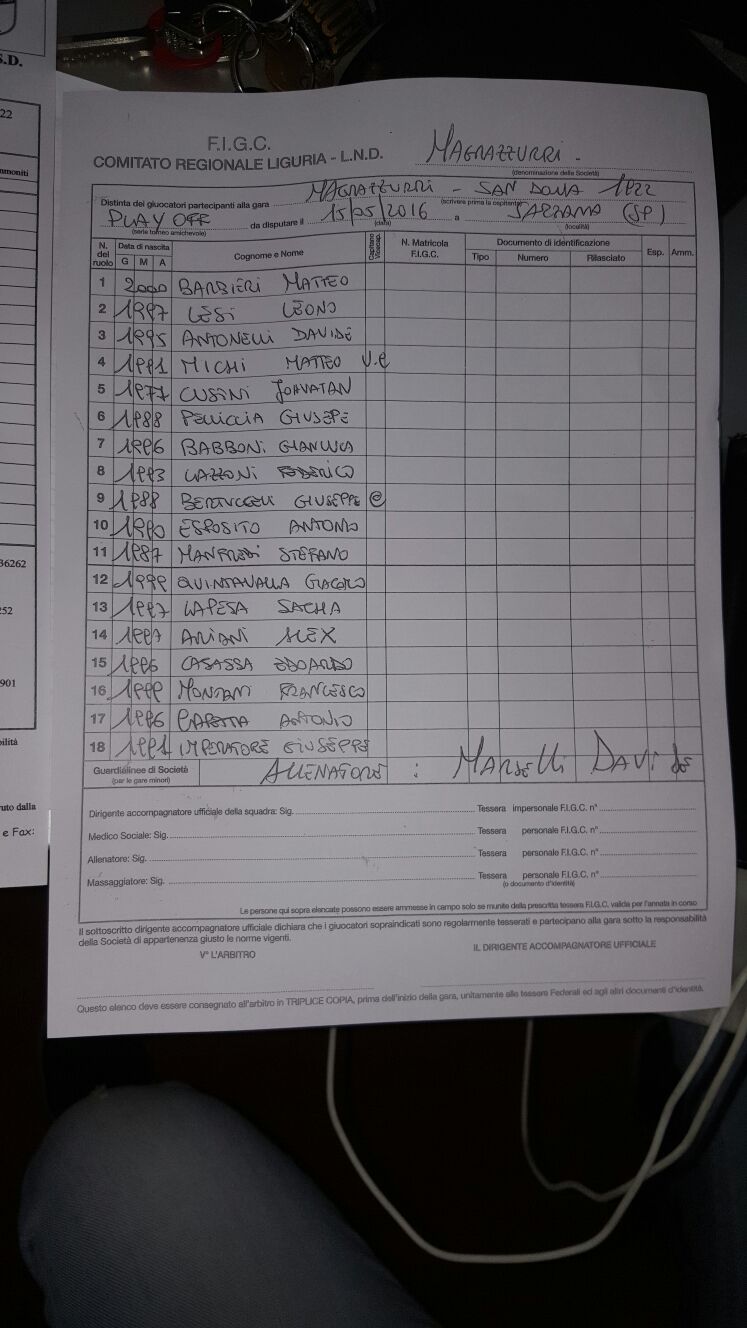 S.D.
22
mmoniti
36262
252
901
bilità
uto dalla
e Fax:
F.I.G.C.
COMITATO REGIONALE LIGURIA - L.N.D.
MAGRAZZURRI -
(denominazione della Società)
Distinta dei giuocatori partecipanti alla gara MAGRAZZURRI - SAN DONA 1922
(scrivere prima la capitante)
PLAY OFF da disputare il 15/05/2016 a SARZANA (SP)
(serie torneo amichevole) (data) (località)
N. del ruolo Data di nascita G M A Cognome e Nome Capitano Vicecap. N. Matricola F.I.G.C. Documento di identificazione Tipo Numero Rilasciato Esp. Amm.
1 2000 BARBIERI MATTEO
2 1997 LESI LEONJ
3 1995 ANTONELLI DAVIDE
4 1991 MICHI MATTEO V.C
5 1977 CUSINI JONATAN
6 1988 PELLICCIA GIUSEPE
7 1996 BABBONI GIANLUCA
8 1993 LAZZONI FEDERICO
9 1988 BERTUCCELLI GIUSEPPE C
10 1990 ESPOSITO ANTONIO
11 1987 MANFREDI STEFANO
12 1999 QUINTAVALLA GIACOMO
13 1997 LAPESA SACHA
14 1997 ARIANI ALEX
15 1996 CASASSA EDOARDO
16 1999 MONTANI FRANCESCO
17 1996 CAPETTA ANTONIO
18 1991 IMPERATORE GIUSEPPE
Guardialinee di Società (per le gare minori) ALLENATORE : MARSELLI DAVIDE
Dirigente accompagnatore ufficiale della squadra: Sig. Tessera impersonale F.I.G.C. n°
Medico Sociale: Sig. Tessera personale F.I.G.C. n°
Allenatore: Sig. Tessera personale F.I.G.C. n°
Massaggiatore: Sig. Tessera personale F.I.G.C. n°
(o documento d'identità)
Le persone qui sopra elencate possono essere ammesse in campo solo se munite della prescritta tessera F.I.G.C. valida per l'annata in corso
Il sottoscritto dirigente accompagnatore ufficiale dichiara che i giuocatori sopraindicati sono regolarmente tesserati e partecipano alla gara sotto la responsabilità
della Società di appartenenza giusto le norme vigenti.
V° L'ARBITRO IL DIRIGENTE ACCOMPAGNATORE UFFICIALE
Questo elenco deve essere consegnato all'arbitro in TRIPLICE COPIA, prima dell'inizio della gara, unitamente alle tessere Federali ed agli altri documenti d'identità.